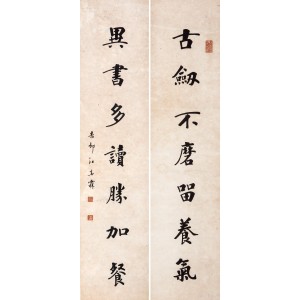 古劔不磨留養氣
異書多讀勝加餐